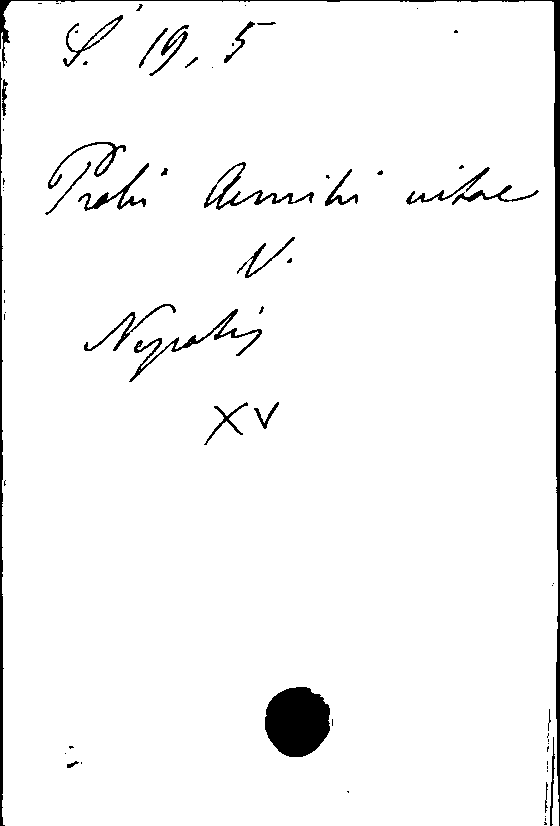 S. 19, 5
Probi Aemilii vitae
V.
Nepotis
XV